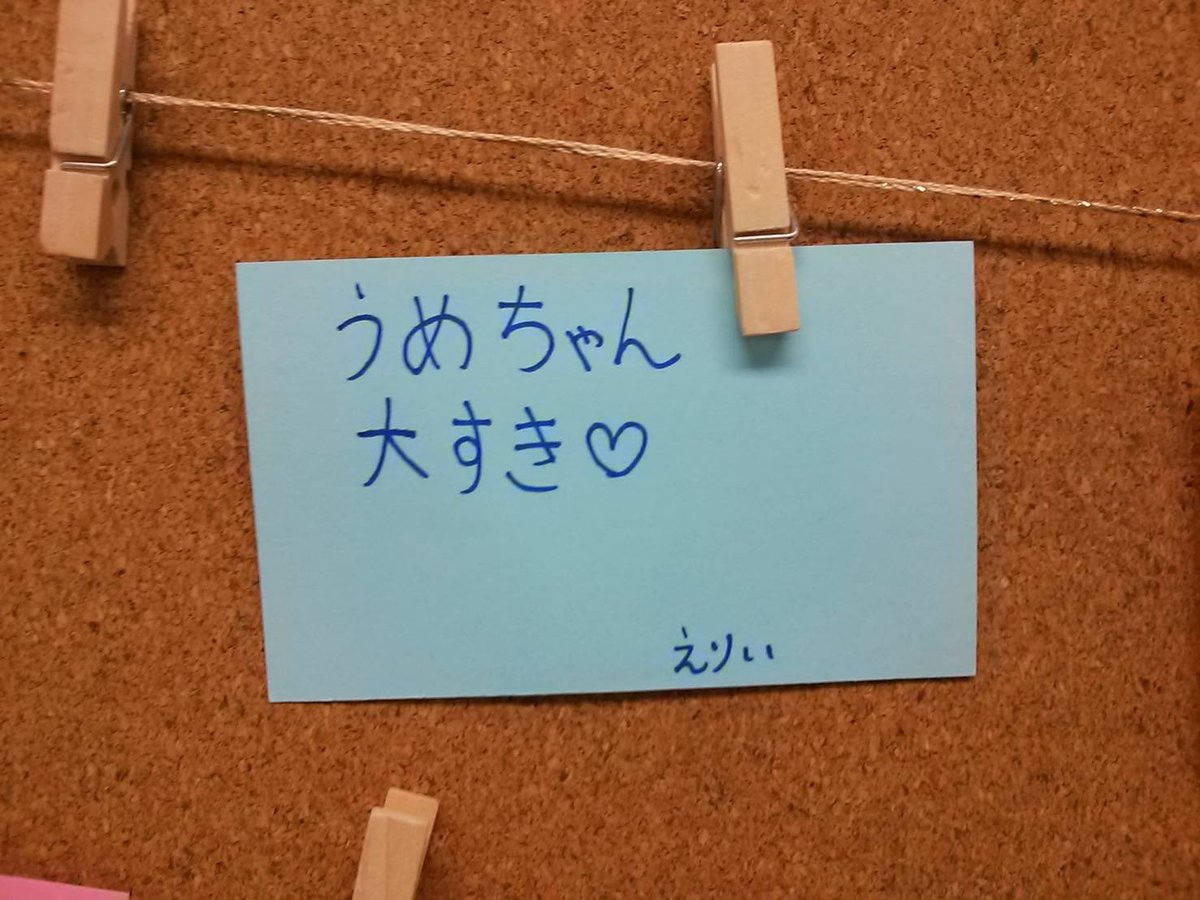 うめちゃん
大すき♡
えりい